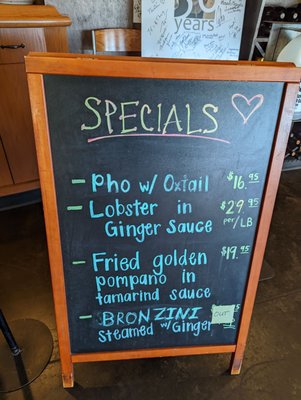 30
YEARS
SPECIALS
- Pho w/ Oxtail $16.95
- Lobster in $29.95
Ginger Sauce per/LB
- Fried golden $19.95
pompano in
tamarind sauce
- BRONZINI OUT
steamed w/Ginger